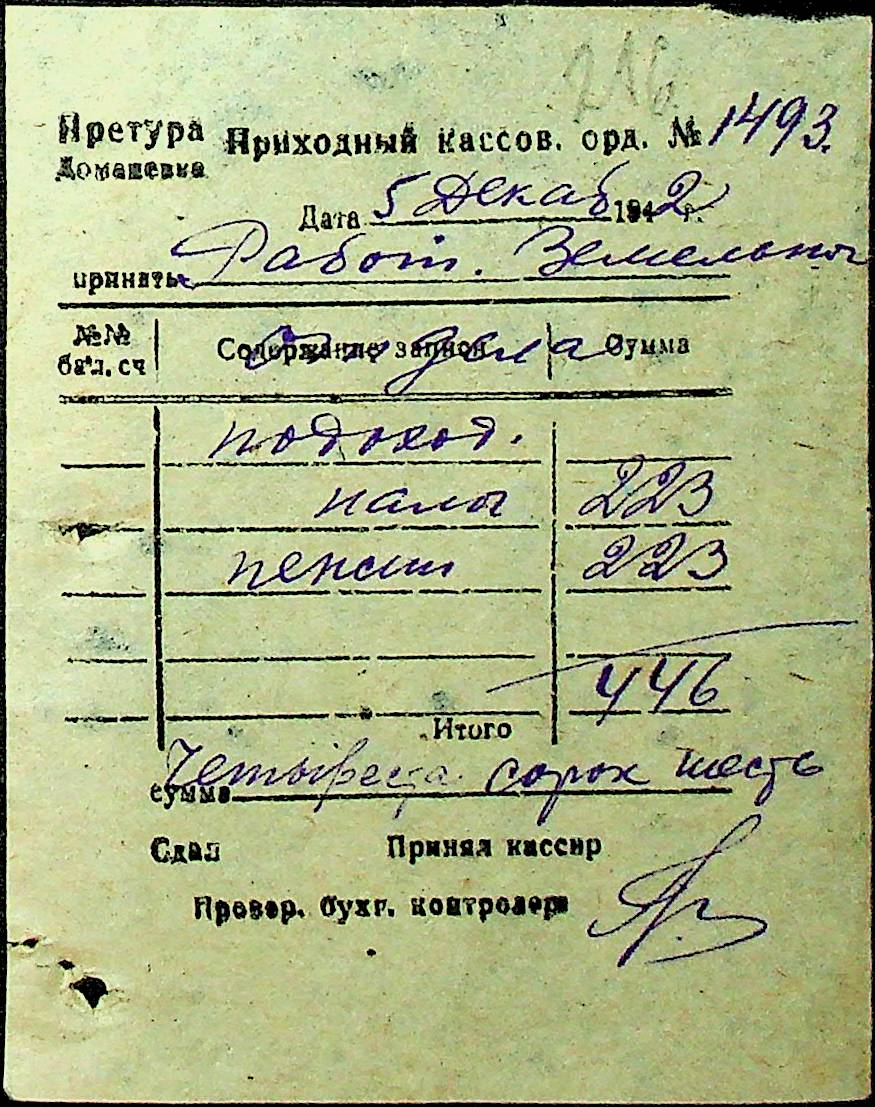 216
Претура Приходный кассов. орд. № 1493.
Доманевка
Дата 5 Декаб 1942 г.
принять Работ. Земельног
Отдела
№№ бал. сч Содержание записи Сумма
подоход.
налог 223
пенсии 223
446
Итого
сумма Четыреста сорок шесть
Сдал Принял кассир
Провер. бухг. контролер